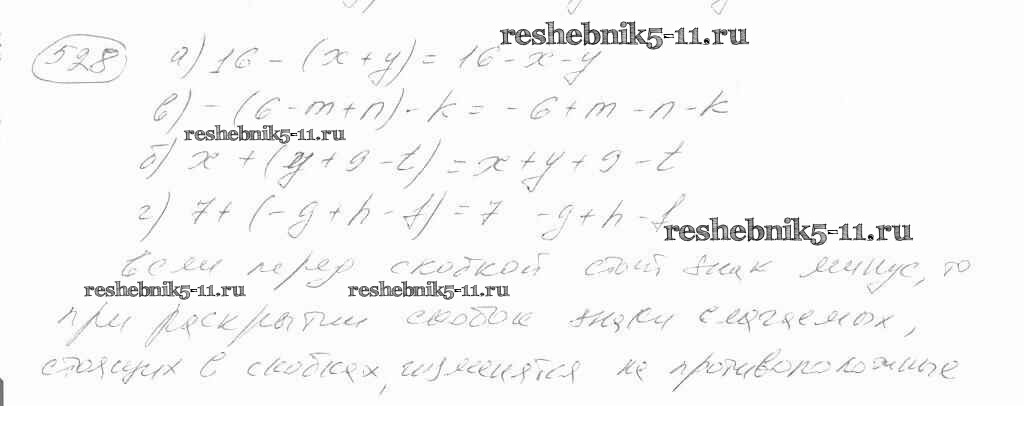 reshebnik5-11.ru
528 а) 16 - (x + y) = 16 - x - y
в) - (6 - m + n) - k = - 6 + m - n - k
reshebnik5-11.ru
б) x + (y + 9 - t) = x + y + 9 - t
г) 7 + (- g + h - f) = 7 - g + h - f
reshebnik5-11.ru
Если перед скобкой стоит знак минус, то
reshebnik5-11.ru reshebnik5-11.ru
при раскрытии скобок знаки слагаемых,
стоящих в скобках, изменятся на противоположные